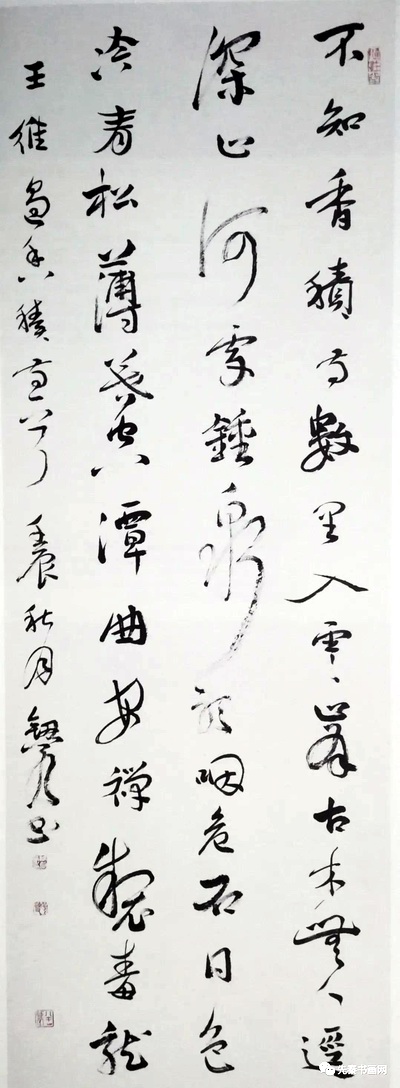 不知香積寺數里入雲峯古木無人逕
深山何處鍾泉聲咽危石日色
冷青松薄暮空潭曲安禪製毒龍
王維過香積寺 壬辰秋月 書
先秦书画网